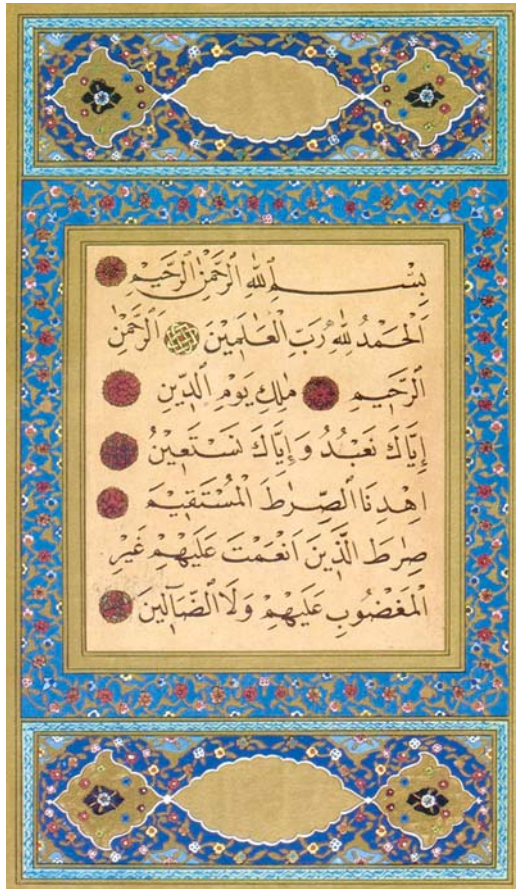 بِسْمِ ٱللّٰهِ ٱلرَّحْمٰنِ ٱلرَّحِيمِ
اَلْحَمْدُ لِلّٰهِ رَبِّ الْعَالَمِينَ اَلرَّحْمٰنِ
الرَّحِيمِ مٰلِكِ يَوْمِ الدِّينِ
إِيَّاكَ نَعْبُدُ وَإِيَّاكَ نَسْتَعِينُ
اهْدِنَا الصِّرٰطَ الْمُسْتَقِيمَ
صِرٰطَ الَّذِينَ اَنْعَمْتَ عَلَيْهِمْ غَيْرِ
الْمَغْضُوبِ عَلَيْهِمْ وَلَا الضَّآلِّينَ